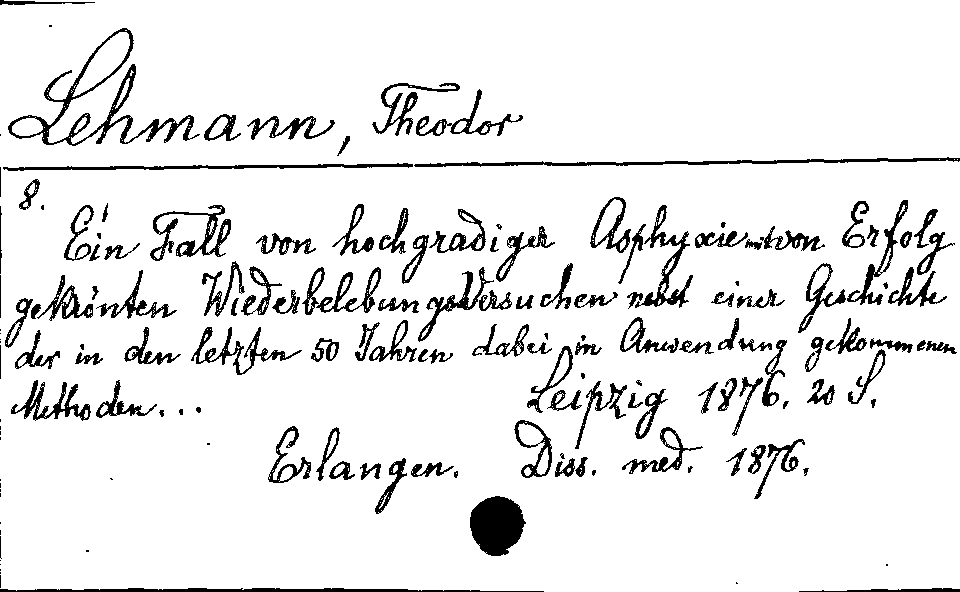 Lehmann, Theodor
8.
Ein Fall von hochgradiger Asphyxie mit von Erfolg
gekrönten Wiederbelebungsversuchen nebst einer Geschichte
der in den letzten 50 Jahren dabei in Anwendung gekommenen
Methoden... Leipzig 1876. 20 S.
Erlangen. Diss. med. 1876.